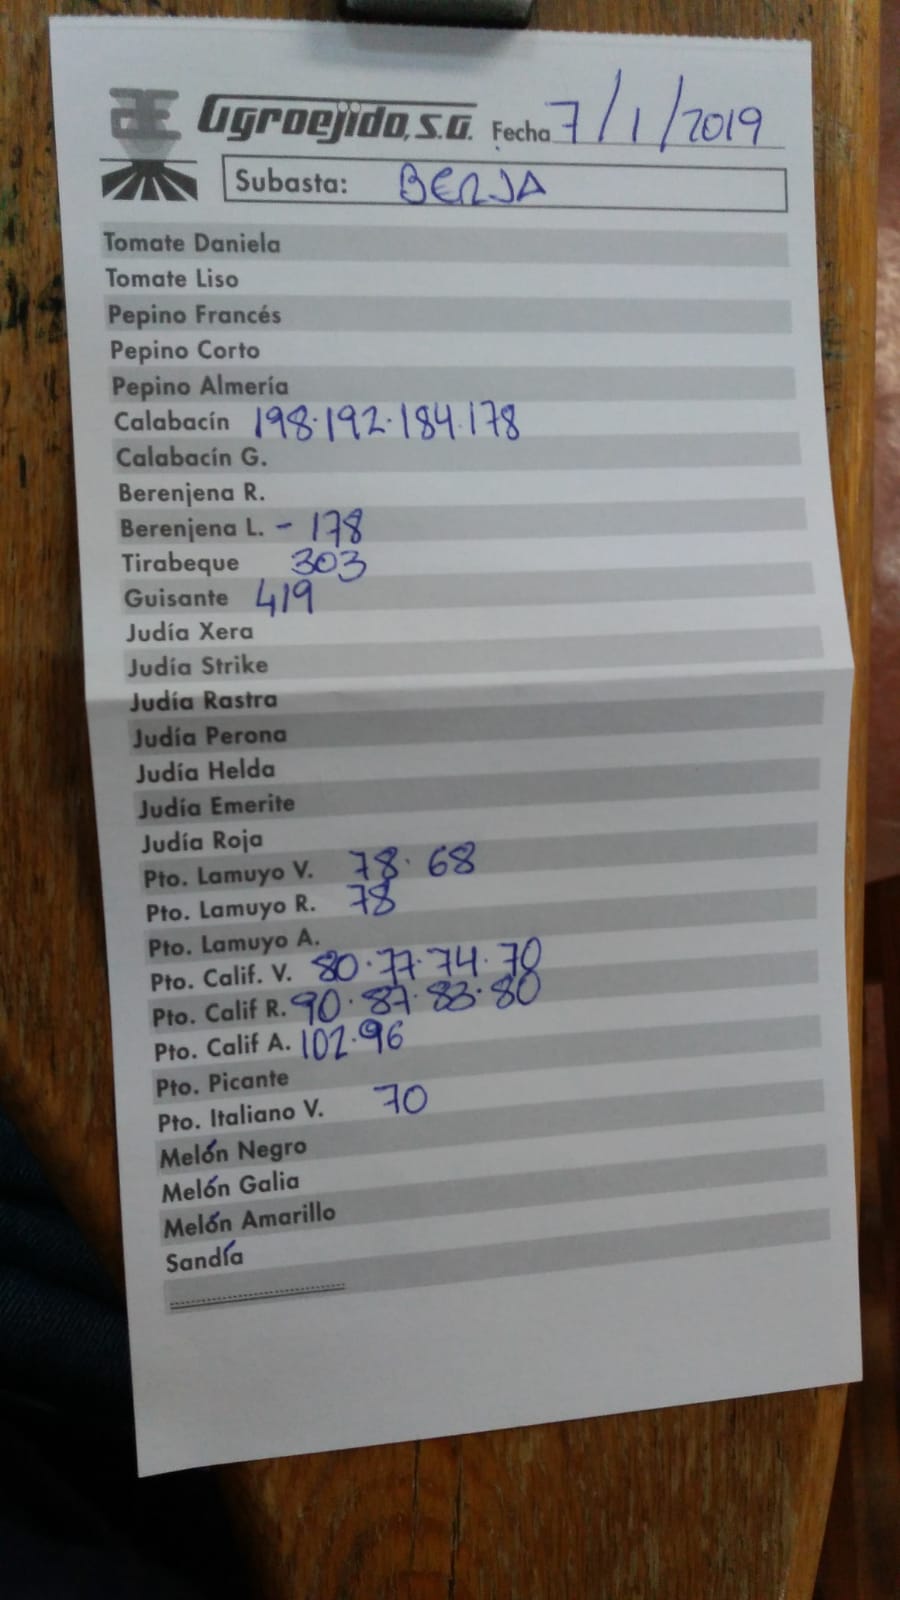 Agroejido, S.A. Fecha 7/1/2019
Subasta: BERJA
Tomate Daniela
Tomate Liso
Pepino Francés
Pepino Corto
Pepino Almería
Calabacín 198·192·184·178
Calabacín G.
Berenjena R.
Berenjena L. - 178
Tirabeque 303
Guisante 419
Judía Xera
Judía Strike
Judía Rastra
Judía Perona
Judía Helda
Judía Emerite
Judía Roja
Pto. Lamuyo V. 78· 68
Pto. Lamuyo R. 78
Pto. Lamuyo A.
Pto. Calif. V. 80·77·74·70
Pto. Calif R. 90·87·83·80
Pto. Calif A. 102·96
Pto. Picante
Pto. Italiano V. 70
Melón Negro
Melón Galia
Melón Amarillo
Sandía